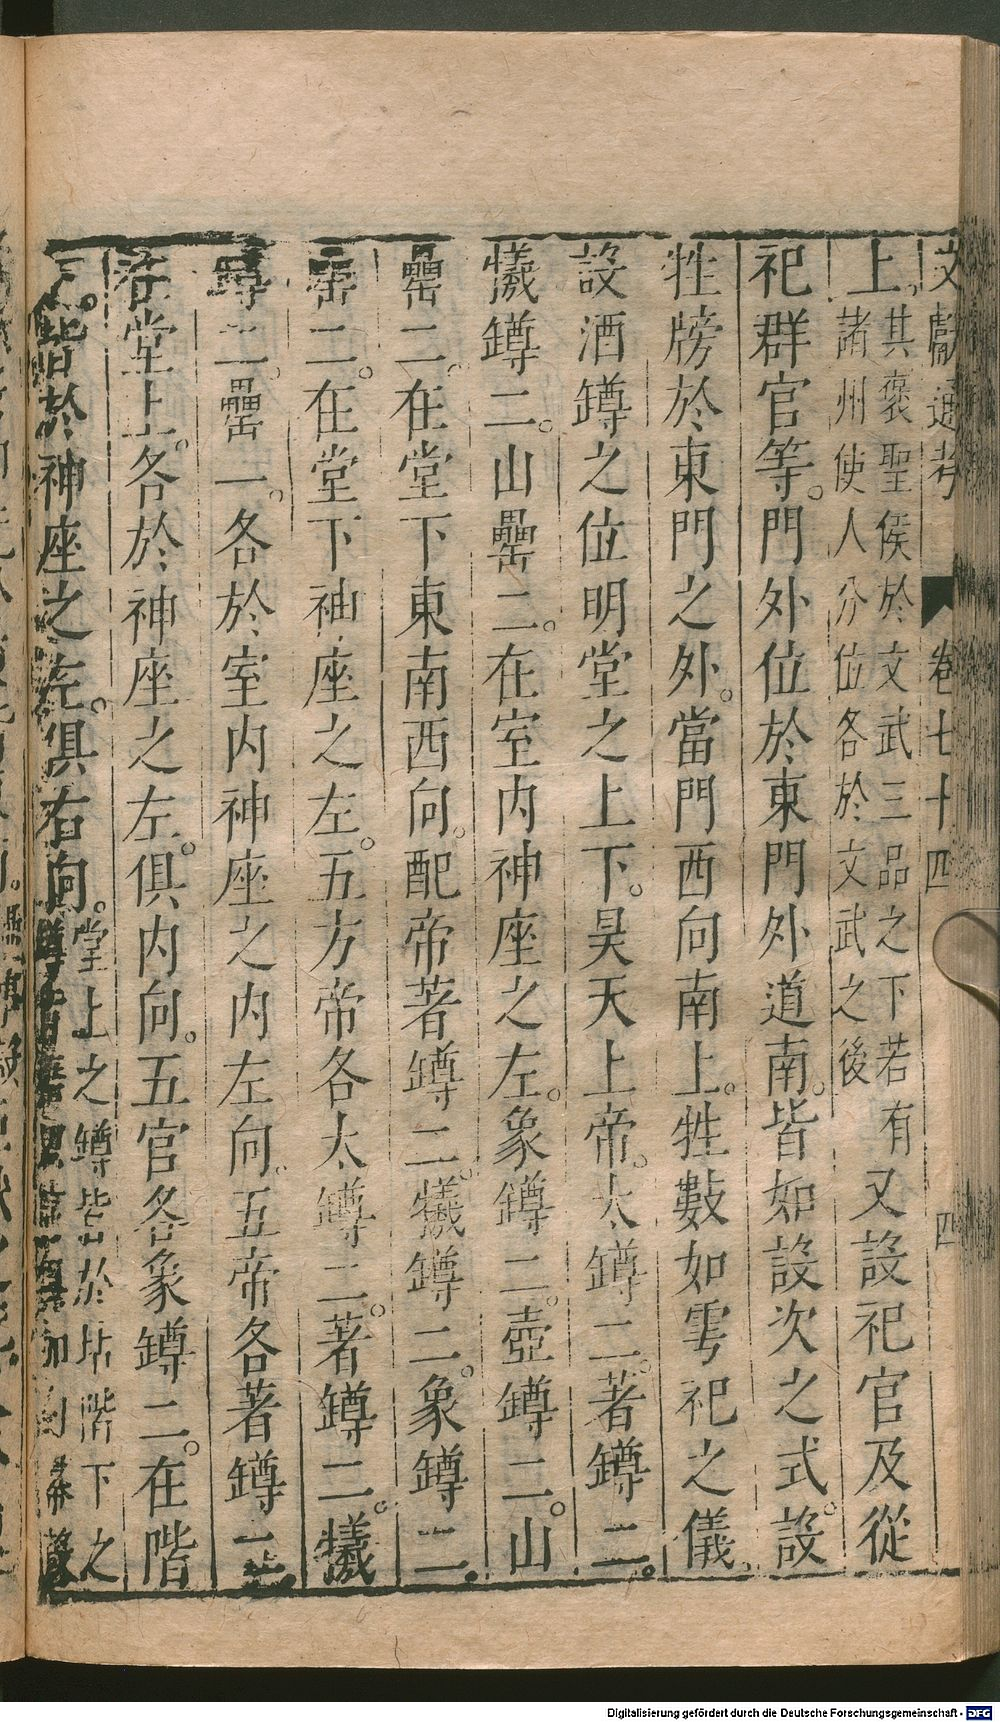 文獻通考 卷七十四 四
上其褒聖侯於文武三品之下若有諸州使人分位各於文武之後又設祀官及從
祀群官等。門外位於東門外道南。皆如設次之式。設
牲牓於東門之外。當門西向南上。牲數如雩祀之儀。
設酒罇之位明堂之上下。昊天上帝。太罇二。著罇二。
犧罇二。山罍二。在室内神座之左。象罇二。壺罇二。山
罍二。在堂下東南西向。配帝著罇二。犧罇二。象罇二。
罍二。在堂下神座之左。五方帝各太罇二。著罇二。犧
罇二。罍一。各於室内神座之内左向。五帝各著罇二。
在堂上。各於神座之左。俱内向。五官各象罇二。在階
下。皆於神座之左。俱右向。堂上之罇皆於坫階下之
Digitalisierung gefördert durch die Deutsche Forschungsgemeinschaft - DFG